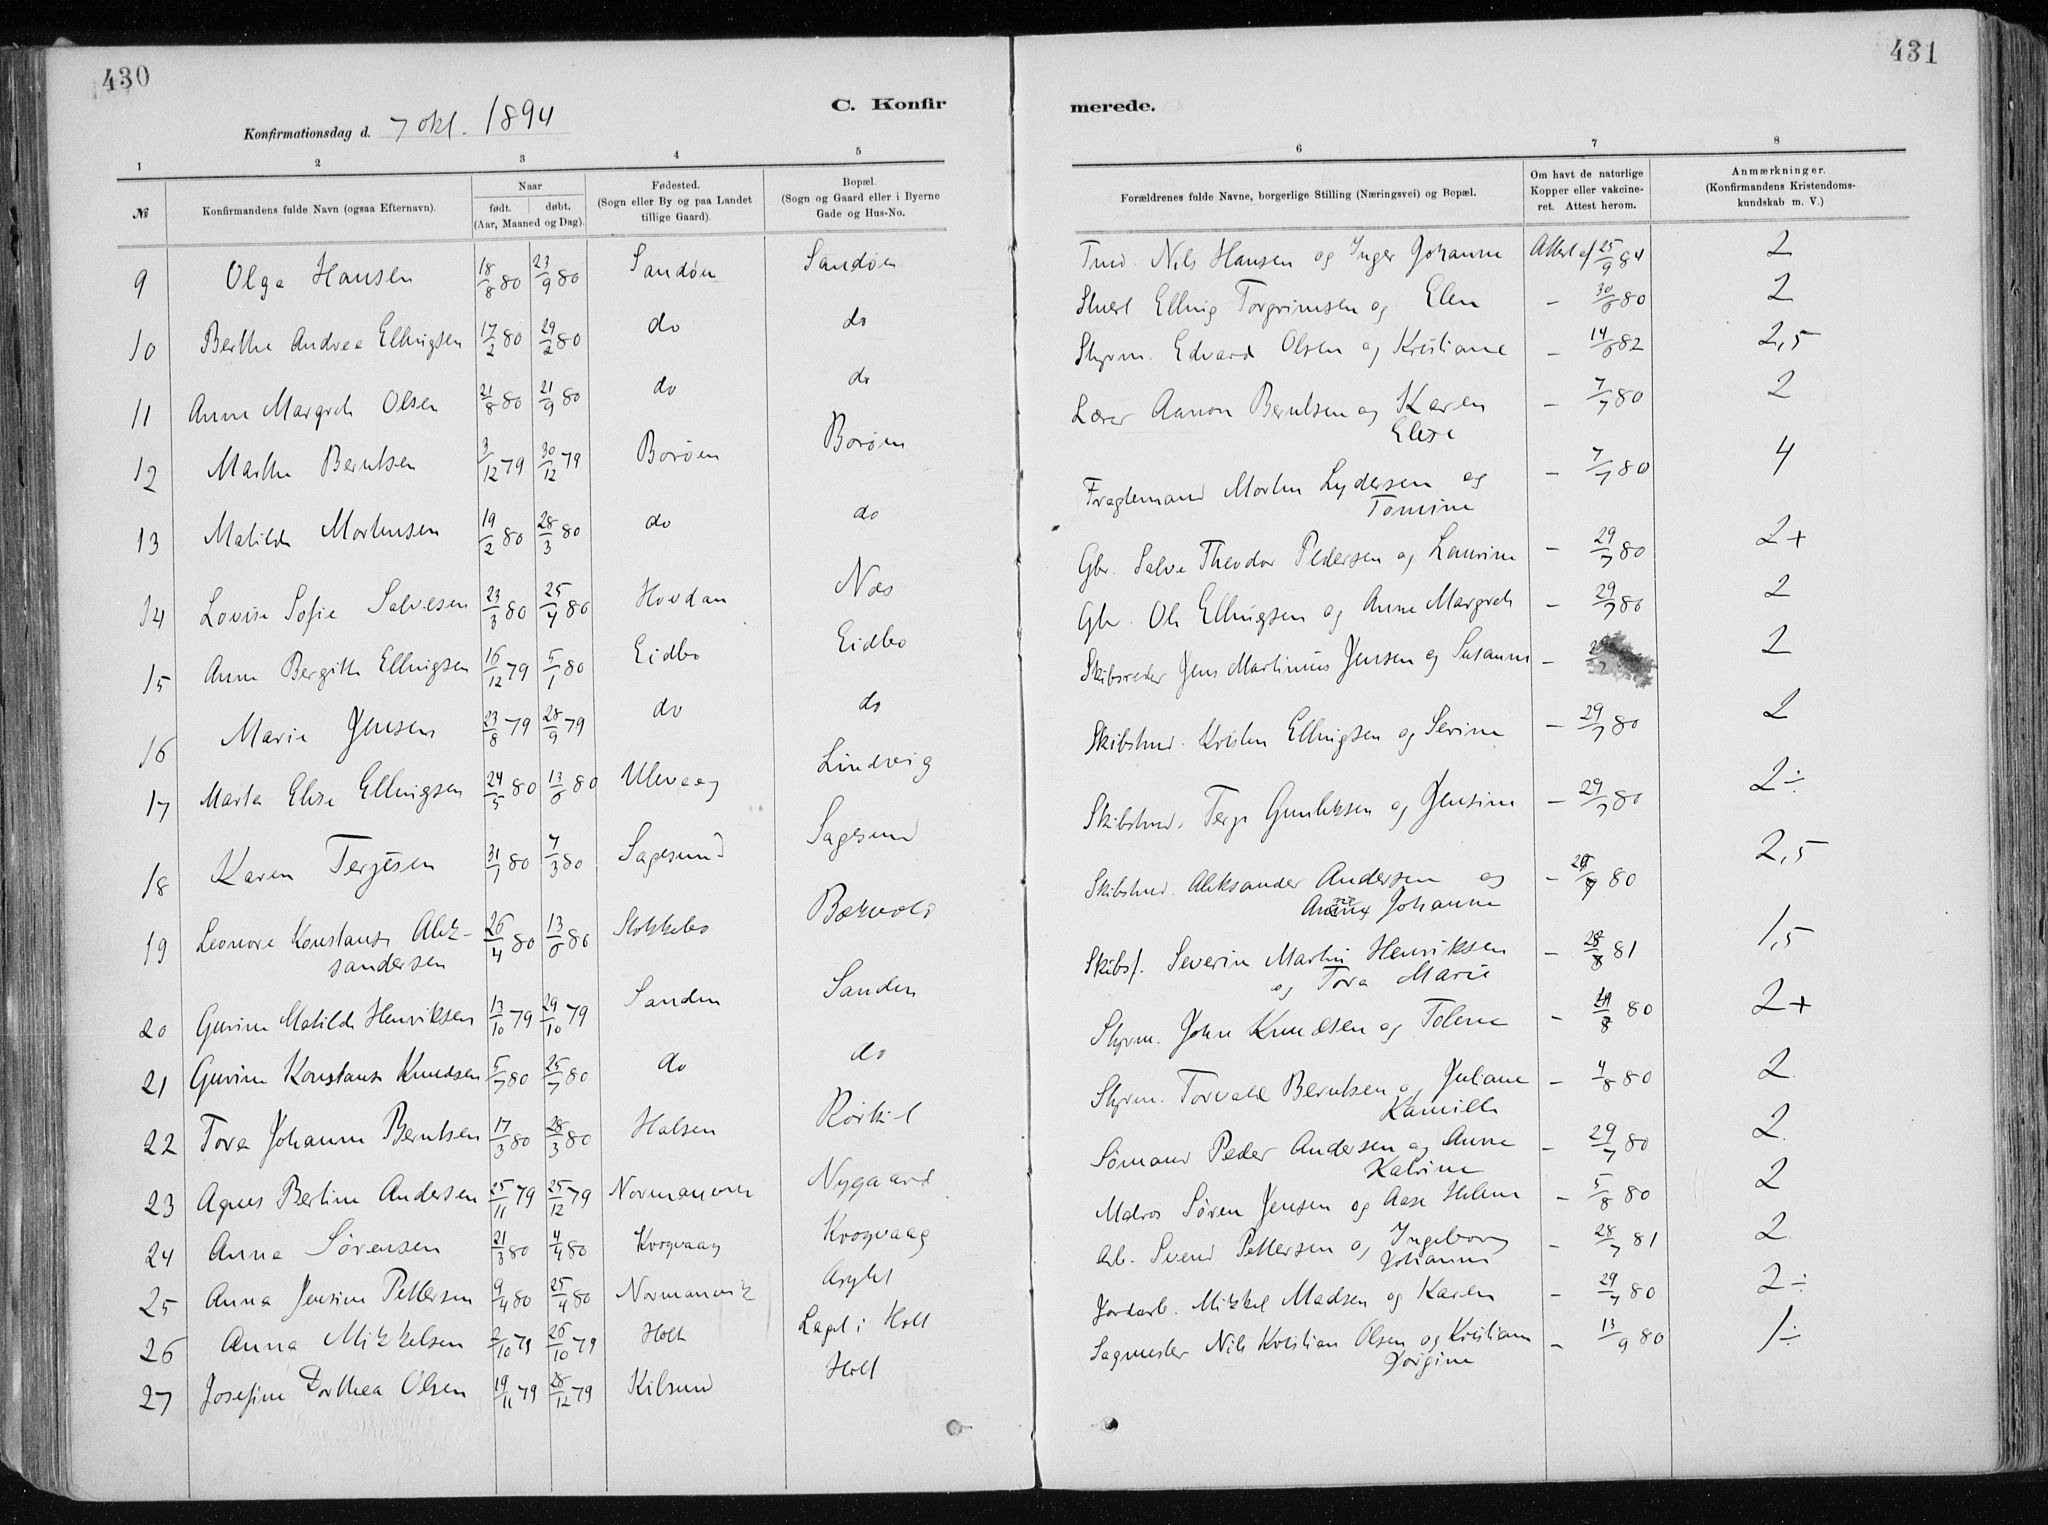 430
431
C. Konfir
merede.
Konfirmationsdag d. 7 okt. 1894
1 2 3 4 5 6 7 8
№
Konfirmandens fulde Navn (ogsaa Efternavn).
Naar
født. døbt.
(Aar, Maaned og Dag).
Fødested.
(Sogn eller By og paa Landet
tillige Gaard).
Bopæl.
(Sogn og Gaard eller i Byerne
Gade og Hus-No.
Forældrenes fulde Navne, borgerlige Stilling (Næringsvei) og Bopæl.
Om havt de naturlige
Kopper eller vakcine-
ret. Attest herom.
Anmærkninger.
(Konfirmandens Kristendoms-
kundskab m. V.)
9 Olga Hansen 18/8 80 23/9 80 Sandøen Sandøen Nils Hansen og Inger Johanne Attest af 25/9 84 2
10 Berthe Andrea Ellingsen 17/2 80 29/2 80 do do Elling Torgrimsen og Elen - 30/6 80 2
11 Anne Margreth Olsen 21/8 80 21/9 80 do do Styrm. Edvard Olsen og Kristiane - 14/6 82 2,5
12 Marthe Berntsen 3/12 79 30/12 79 Borøen Borøen Lærer Aanon Berntsen og Karen - 7/7 80 2
Elise
13 Matilde Mortensen 19/2 80 28/3 80 do do Fragtemand Morten Lydersen og - 7/7 80 4
Tomine
14 Lovise Sofie Salvesen 23/3 80 25/4 80 Hovdan Næs Gbr. Salve Theodor Pedersen og Laurine - 29/7 80 2+
15 Anne Bergith Ellingsen 16/12 79 5/1 80 Eidbo Eidbo Gbr. Ole Ellingsen og Anne Margreth - 29/7 80 2
16 Marie Jensen 23/8 79 28/9 79 do do Skibsreder Jens Martinius Jensen og Susanne - 2
17 Marta Elise Ellingsen 24/5 80 13/6 80 Ulevaag Lindvig Skibstmd. Kristen Ellingsen og Serine - 29/7 80 2
18 Karen Terjesen 31/1 80 7/3 80 Sagesund Sagesund Skibstmd. Terje Gunleksen og Jensine - 29/7 80 2÷
19 Leonore Konstanse Alek- 26/4 80 13/6 80 Stokkebo Bækvold Skibstmd. Aleksander Andersen og - 80 2,5
sandersen Johanne
20 Guvine Matilde Henriksen 13/10 79 29/10 79 Sanden Sanden Skibsf. Severin Martin Henriksen - 28/8 81 1,5
og Tora Marie
21 Guvine Konstanse Knudsen 5/7 80 25/7 80 do do Styrm. John Knudsen og Tolene - 80 2+
22 Tora Johanne Berntsen 17/3 80 28/3 80 Halsen Rørkil Styrm. Torvald Berntsen og Juliane - 4/8 80 2.
Kamilla
23 Agnes Bertine Andersen 25/11 79 25/12 79 Normanvik Nygaard Sømand Peder Andersen og Anne - 29/7 80 2.
Katrine
24 Anna Sørensen 21/3 80 4/4 80 Krogvaag Krogvaag Matros Søren Jensen og Aase Helene - 5/8 80 2
25 Anna Jensine Pettersen 9/4 80 25/4 80 Normanvik Asylet Arb. Svend Pettersen og Ingeborg - 28/7 81 2.
Johanne
26 Anna Mikkelsen 2/10 79 26/10 79 Holt Laget i Holt Jordarb. Mikkel Madsen og Karen - 29/7 80 2÷
27 Josefine Dorthea Olsen 19/11 79 28/12 79 Kilsund Holt Sagmester Nils Kristian Olsen og Kristiane - 13/9 80 1÷
Jørgine